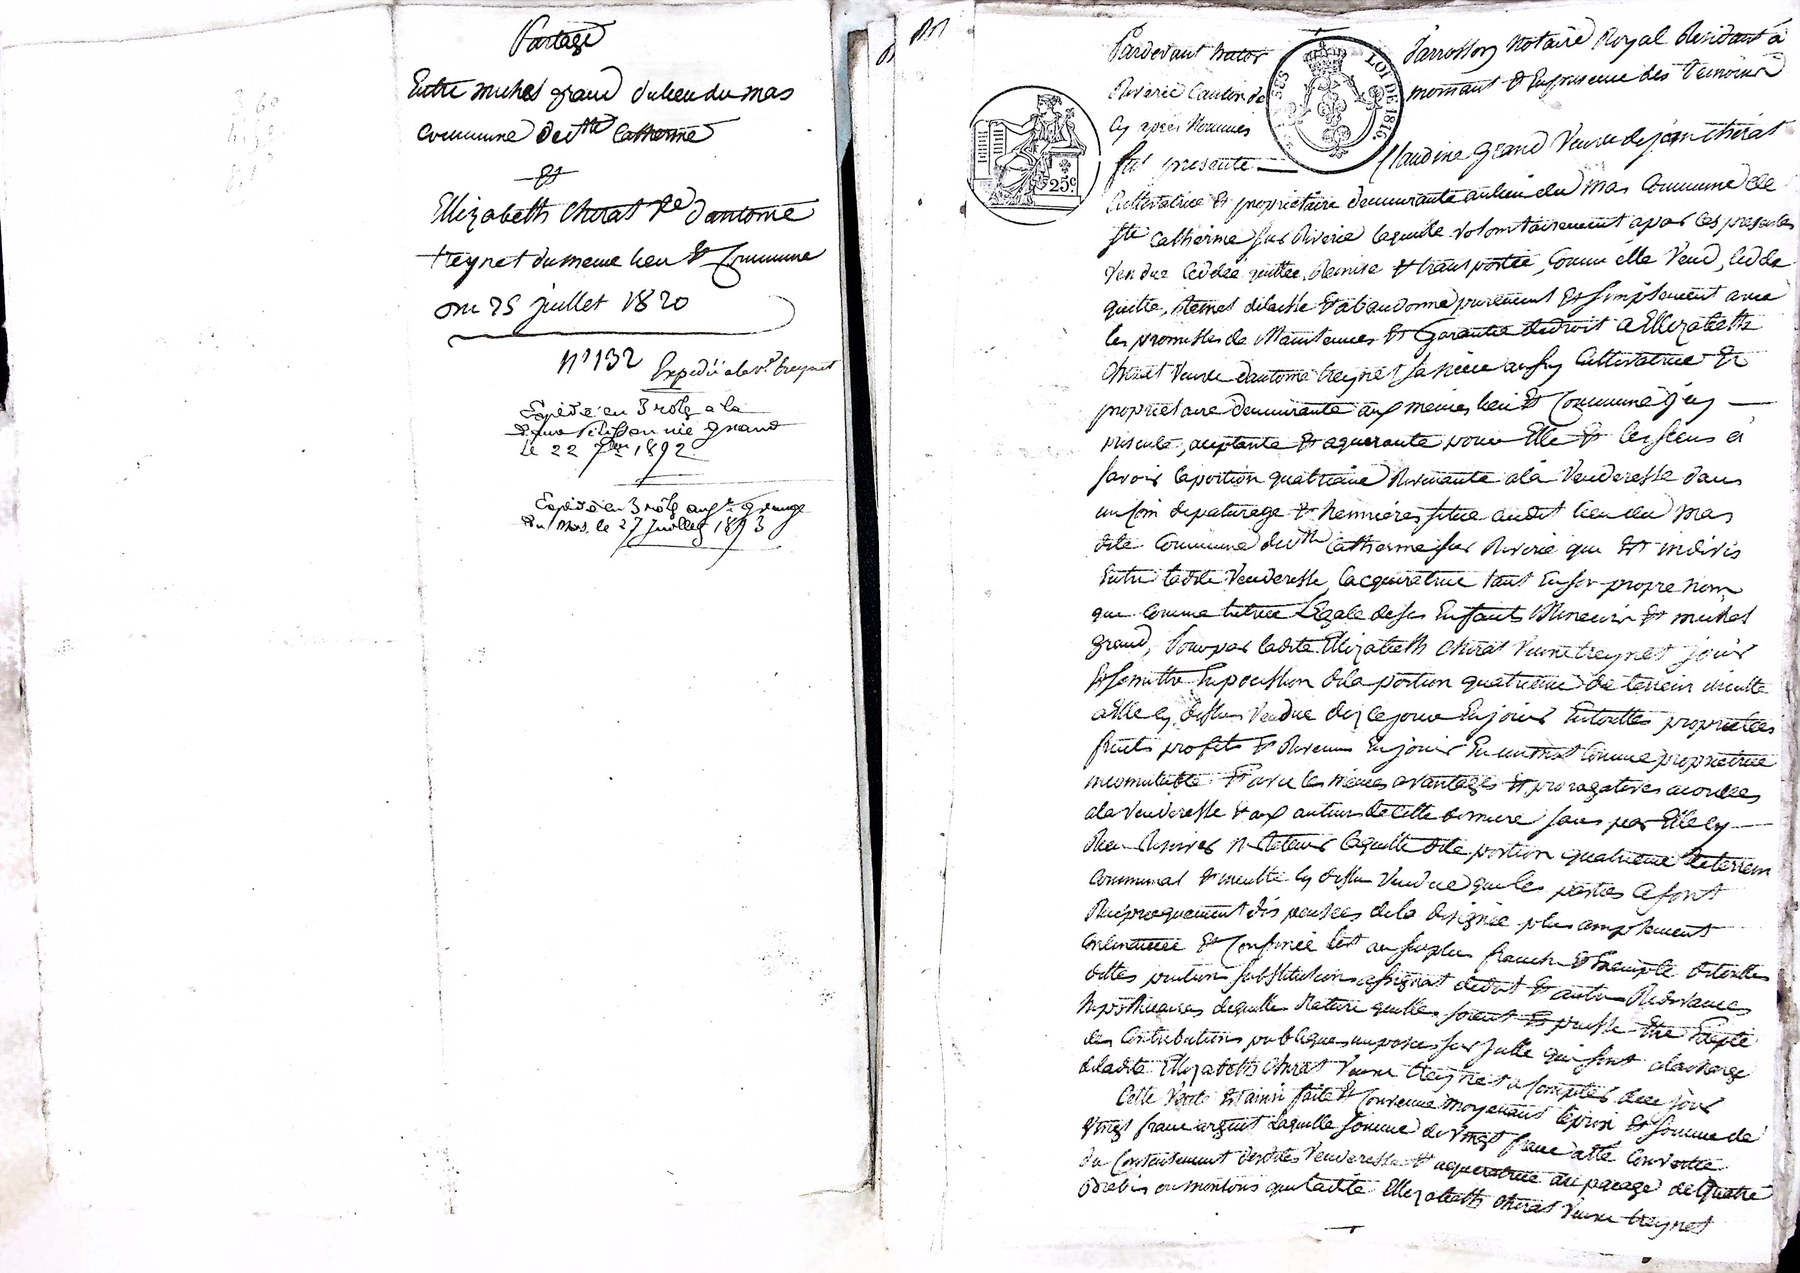 Partage
Entre michel grand du lieu du mas
Commune de Ste Catherine
Et
Ellizabeth Chirat Ve d'antoine
treynet du meme lieu Et Commune
du 25 juillet 1820
N° 132
Expédié a la ve treynet
Expédié en 3 rôles a la
née grand
le 22 7bre 1892
Expédié en 3 rôles
du Mas, le 27 Juillet 1893
Pardevant Jarrosson Notaire Royal Residant à
Riverie Canton de mornant Et En presence des temoins
Cy après Nommés
fut presente Claudine grand Veuve de jean Chirat
Cultivatrice Et propriétaire demeurante au lieu du mas Commune de
Ste Catherine sur Riverie laquelle volontairement a par ces presentes
Vendue Ceddée quittée Remise Et transportée, Comme elle Vend, Cedde
quitte, Remet delaisse Et abandonne purement Et simplement avec
les promesses de Maintenues Et Garantie de droit a Ellizabeth
Chirat Veuve d'antoine treynet sa nièce aussy Cultivatrice Et
propriétaire demeurante aux mêmes lieu Et Commune Icy
presente, aceptante Et aquerante pour Elle Et les siens à
savoir la portion quatrième Revenante a la Venderesse dans
un Coin de paturage Et hermières situé audit lieu du mas
dite Commune de Ste Catherine sur Riverie qui Est indivis
Entre ladite Venderesse lacqueratrice tant En son propre nom
que Comme tutrice Légale de ses Enfants Mineurs Et michel
grand, Pour par ladite Ellizabeth Chirat Veuve treynet jouir
Et se mettre En possession de la portion quatrieme de terrein inculte
a Elle cy dessus Vendue dez ce jour En jouir En touttes proprietées
fruits profits Et Revenus En jouir En un mot Comme propriétaire
incomutable Et avec les mêmes avantages Et prérogatives acordées
a la Venderesse Et aux auteurs de Cette dernière sans par Elle Cy
Rien Reserver N Retenir laquelle dite portion quatrieme de terrein
Communal Et inculte Cy dessus Vendue que les parties Ce sont
Réciproquement dispensées de la designée plus amplement
Et Confinée Est au surplus franche Et Exempte de touttes
dettes substitutions de dot Et autres Redevances
hipothécaires de quelle Nature quelles soient Et puisse Etre Exepté
des Contributions publiques imposées sur Julle qui sont a la charge
de ladite Ellizabeth Chirat Veuve treynet a Compter de ce jour
Cette Vente Est ainsi faite Et Convenue moyenant le prix Et somme de
Vingt franc argent Laquelle somme de Vingt franc a été Convertie
du Consentement desdites Venderesse Et aqueratrice au pacage de Quatre
Brebis ou moutons que ladite Ellizabeth Chirat Veuve treynet
TIMBRES
LOI DE 1816
25c